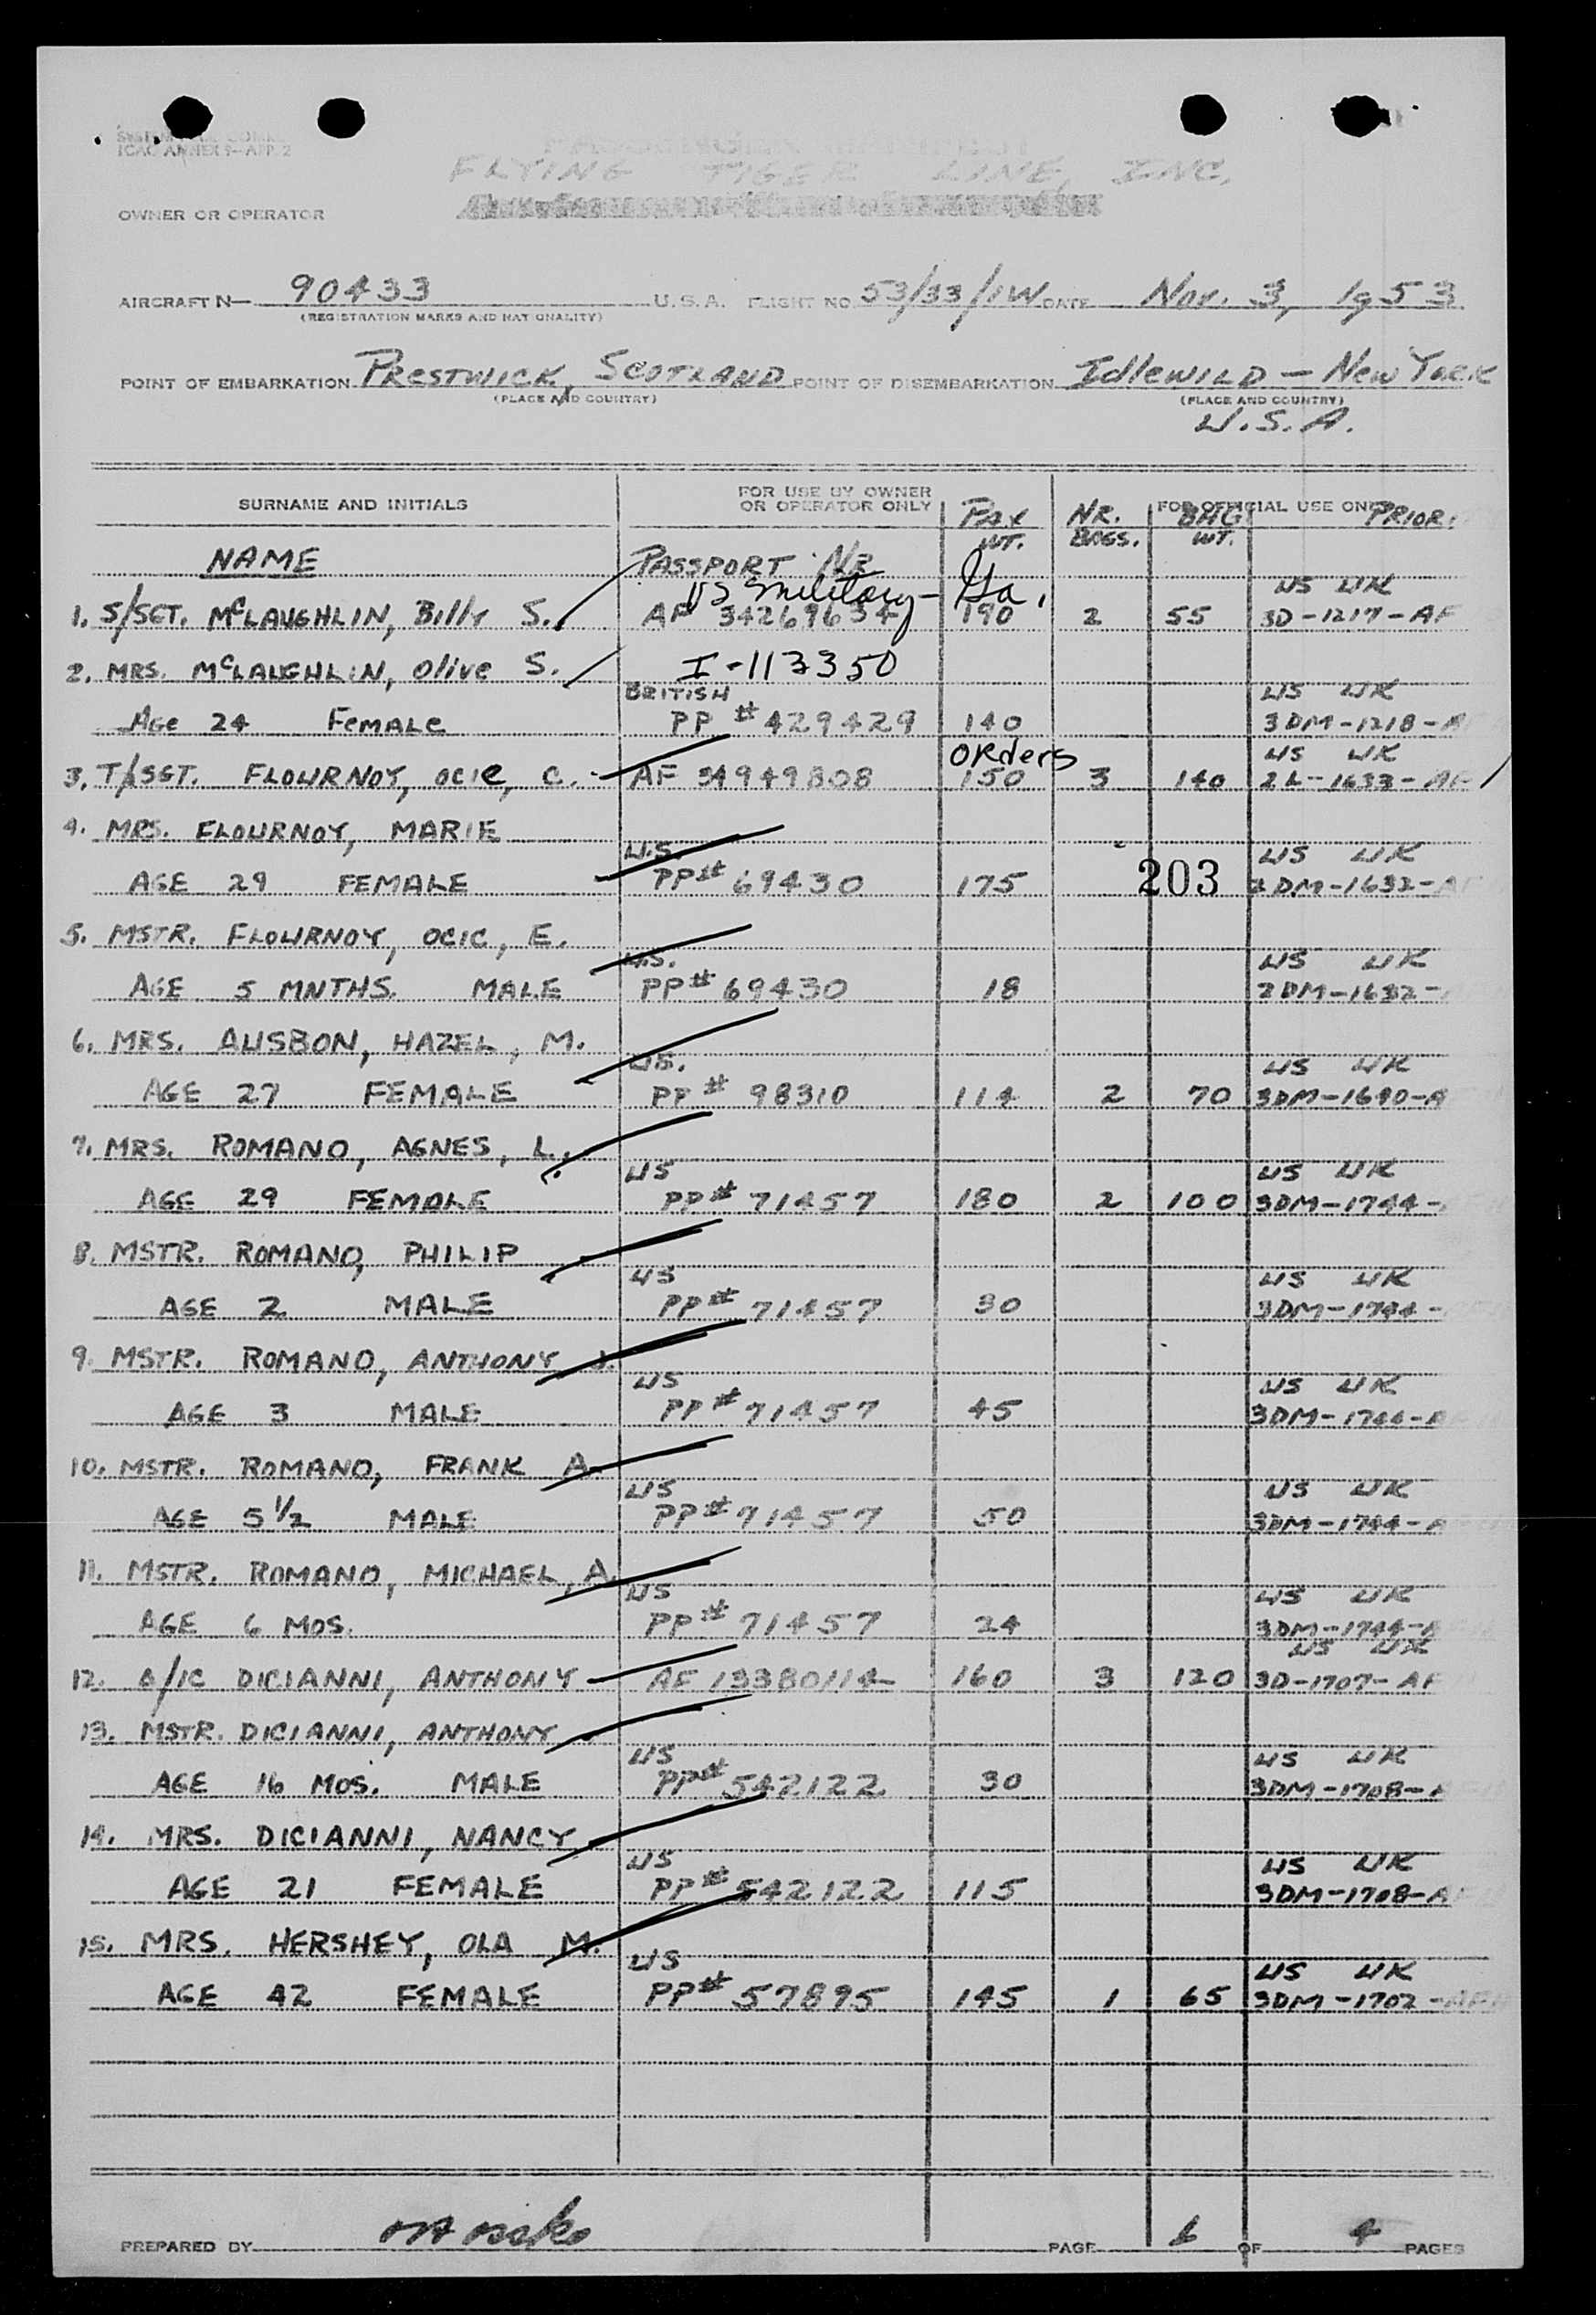 ICAO ANNEX 9—APP. 2
FLYING TIGER LINE, INC.
OWNER OR OPERATOR
AIRCRAFT N— 90433 U.S.A. FLIGHT NO. 53/33/1W DATE Nov. 3, 1953
(REGISTRATION MARKS AND NATIONALITY)
POINT OF EMBARKATION PRESTWICK, SCOTLAND POINT OF DISEMBARKATION IdlEWILD — NEW YORK
(PLACE AND COUNTRY) (PLACE AND COUNTRY)
U.S.A.
SURNAME AND INITIALS FOR USE BY OWNER OR OPERATOR ONLY PAX WT. NR. BAGS. FOR OFFICIAL USE ONLY BAG WT. PRIOR.
NAME PASSPORT NR
US military - Ga. US UK
1. S/SGT. McLAUGHLIN, Billy S. AF 34269634 190 2 55 3D-1217-AF
2. MRS. McLAUGHLIN, Olive S. I-113350
BRITISH US UK
AGE 24 FEMALE PP # 429429 140 3DM-1218-A
ORders US UK
3. T/SGT. FLOURNOY, OCIE, C. AF 34949808 150 3 140 2L-1633-AF
4. MRS. FLOURNOY, MARIE
U.S. US UK
AGE 29 FEMALE PP# 69430 175 203 2DM-1632-A
5. MSTR. FLOURNOY, OCIC, E.
U.S. US UK
AGE 5 MNTHS. MALE PP# 69430 18 2DM-1632-
6. MRS. AUSBON, HAZEL, M.
US. US UK
AGE 27 FEMALE PP # 98310 114 2 70 3DM-1690-A
7. MRS. ROMANO, AGNES, L.
US US UK
AGE 29 FEMALE PP# 71457 180 2 100 3DM-1744-
8. MSTR. ROMANO, PHILIP
US US UK
AGE 2 MALE PP# 71457 30 3DM-1744-
9. MSTR. ROMANO, ANTHONY J.
US US UK
AGE 3 MALE PP# 71457 45 3DM-1744-A
10. MSTR. ROMANO, FRANK A.
US US UK
AGE 5 1/2 MALE PP# 71457 50 3DM-1744-A
11. MSTR. ROMANO, MICHAEL, A.
US US UK
AGE 6 MOS. PP# 71457 24 3DM-1744-A
US UK
12. A/1C DICIANNI, ANTHONY AF 13380114 160 3 120 3D-1707-AF
13. MSTR. DICIANNI, ANTHONY
US US UK
AGE 16 MOS. MALE PP# 542122 30 3DM-1708-A
14. MRS. DICIANNI, NANCY
US US UK
AGE 21 FEMALE PP# 542122 115 3DM-1708-A
15. MRS. HERSHEY, OLA M.
US US UK
AGE 42 FEMALE PP# 57895 145 1 65 3DM-1702-AF
PREPARED BY PAGE 1 OF 4 PAGES